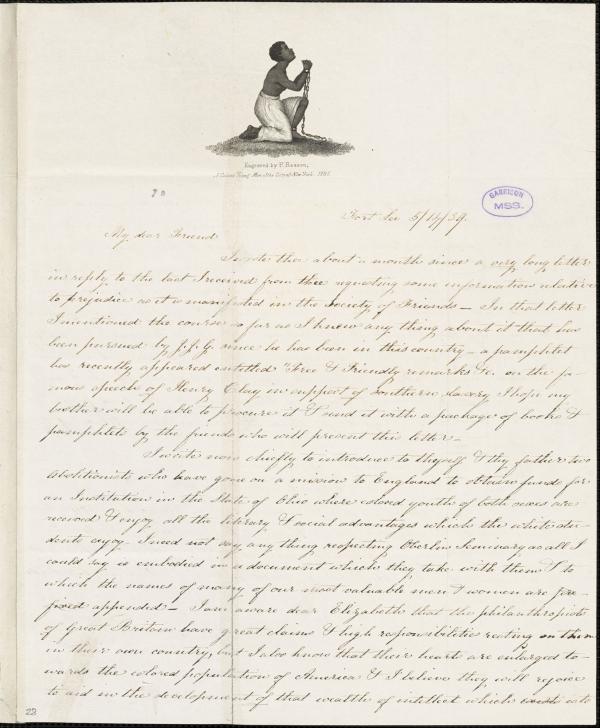 Engraved by P. Reason,
A Colored Young Man of the City of New York 1835
GARRISON
MSS.
Fort Lee 5/14/39.
My dear Friend
I wrote thee about a month since a very long letter
in reply to the last I received from thee requesting some information relative
to prejudice as it is manifested in the Society of Friends — In that letter
I mentioned the course so far as I knew any thing about it that has
been pursued by J. J. G. since he has been in this country — a pamphlet
has recently appeared entitled "Free & Friendly remarks &c. on the fa-
mous speech of Henry Clay in support of Southern slavery I hope my
brother will be able to procure it & send it with a package of books &
pamphlets by the friends who will present this letter —
I write now chiefly to introduce to thyself & thy father two
Abolitionists who have gone on a mission to England to obtain funds for
an Institution in the State of Ohio where colored youth of both sexes are
received & enjoy all the literary & social advantages which the white stu-
dents enjoy. I need not say any thing respecting Oberlin Seminary as all I
could say is embodied in a document which they take with them & to
which the names of many of our most valuable men & women are pre-
fixed appended — I am aware dear Elizabeth that the philanthropists
of Great Britain have great claims & high responsibilities resting on them
in their own country, but I also know that their hearts are enlarged to-
wards the colored population of America & I believe they will rejoice
to aid in the development of that wealth of intellect which
22